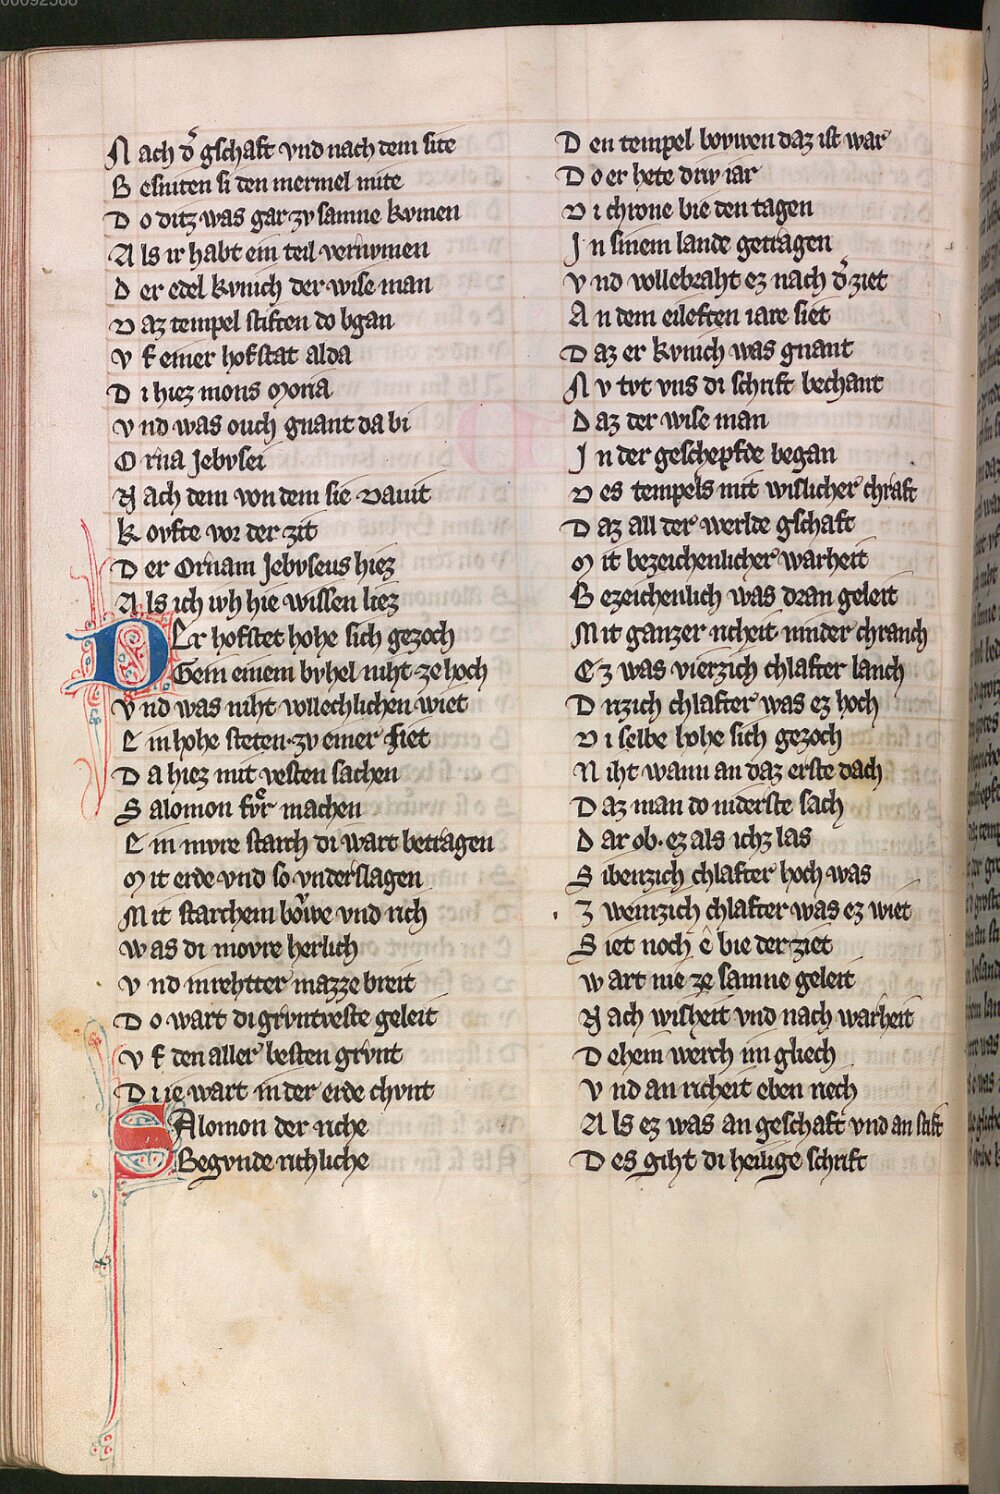 00092588
Nach d̉ gschaft vnd nach dem site
Besniten si den mermel mite
Do ditz was gar zv samne kvmen
Als ir habt ein teil vernvmen
Der edel kvnich der wise man
Daz tempel stiften do bgan
Vf einer hofstat alda
Di hiez mons moria
Vnd was ouch gnant da bi
Orna Jebvsei
Nach dem von dem sie Dauit
Koyfte vor der zit
Der Ornam Jebvseus hiez
Als ich iwh hie wissen liez
DEr hofstet hohe sich gezoch
Gein einem bvhel niht ze hoch
Vnd was niht vollechlichen wiet
Ein hohe steten zv einer siet
Da hiez mit vesten sachen
Salomon fvr machen
Ein mvre starch di wart betragen
Mit erde vnd so vnderslagen
Mit starchem bowe vnd rich
Was di movre herlich
Vnd in rehtter mazze breit
Do wart di grvntveste geleit
Vf den aller besten grvnt
Di ie wart in der erde chvnt
SAlomon der riche
Begvnde richliche
Den tempel bovwen daz ist war
Do er hete driv iar
Di chrone bie den tagen
Jn sinem lande getragen
Vnd vollebraht ez nach d̉ ziet
An dem eileften iare siet
Daz er kvnich was gnant
Nv tvt vns di schrift bechant
Daz der wise man
Jn der geschepfde began
Des tempels mit wislicher chraft
Daz all der werlde gschaft
Mit bezeichenlicher warheit
Bezeichenlich was dran geleit
Mit ganzer richeit ninder chranch
Ez was vierzich chlafter lanch
Drizich chlafter was ez hoch
Di selbe hohe sich gezoch
Niht wann an daz erste dach
Daz man do niderste sach
Dar ob ez als ichz las
Sibenzich chlafter hoch was
Zweinzich chlafter was ez wiet
Siet noch ê bie der ziet
Wart nie ze samne geleit
Nach wisheit vnd nach warheit
Dehein werch im gliech
Vnd an richeit eben riech
Als ez was an geschaft vnd an stift
Des giht di heilige schrift